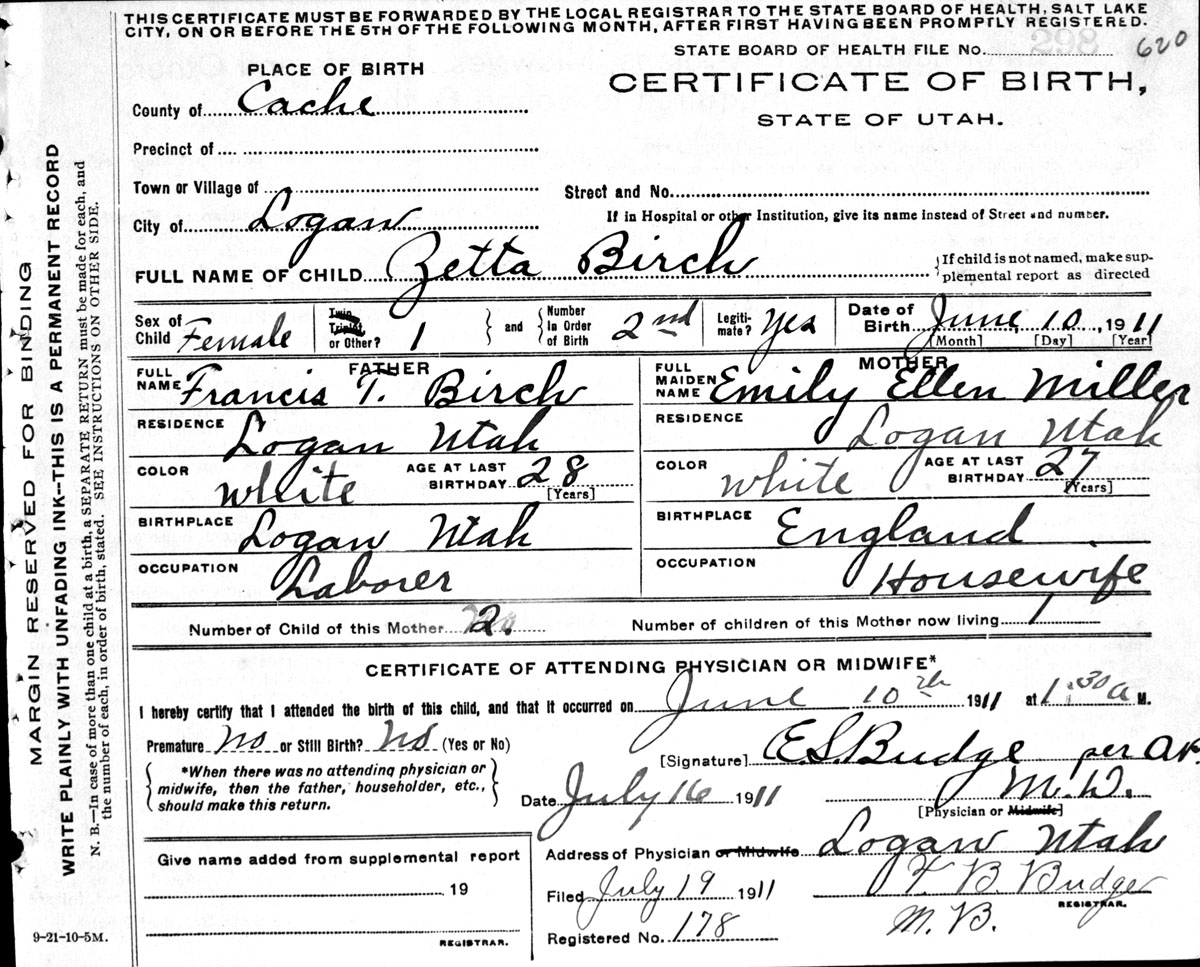 THIS CERTIFICATE MUST BE FORWARDED BY THE LOCAL REGISTRAR TO THE STATE BOARD OF HEALTH, SALT LAKE
CITY, ON OR BEFORE THE 5TH OF THE FOLLOWING MONTH, AFTER FIRST HAVING BEEN PROMPTLY REGISTERED.
STATE BOARD OF HEALTH FILE No. 620
PLACE OF BIRTH
CERTIFICATE OF BIRTH,
County of Cache
STATE OF UTAH.
Precinct of
Town or Village of
Street and No.
City of Logan
If in Hospital or other Institution, give its name instead of Street and number.
FULL NAME OF CHILD Zetta Birch
If child is not named, make sup-
plemental report as directed
Sex of Child Female
Twin Triplet or Other? 1
and
Number In Order of Birth 2nd
Legiti-mate? Yes
Date of Birth June 10, 1911
[Month] [Day] [Year]
FATHER
FULL NAME Francis T. Birch
RESIDENCE Logan Utah
COLOR White
AGE AT LAST BIRTHDAY 28
[Years]
BIRTHPLACE Logan Utah
OCCUPATION Laborer
MOTHER
FULL MAIDEN NAME Emily Ellen Miller
RESIDENCE Logan Utah
COLOR White
AGE AT LAST BIRTHDAY 27
[Years]
BIRTHPLACE England
OCCUPATION Housewife
Number of Child of this Mother 2.
Number of children of this Mother now living 1
CERTIFICATE OF ATTENDING PHYSICIAN OR MIDWIFE*
I hereby certify that I attended the birth of this child, and that it occurred on June 10th 1911 at 1:30 a M.
Premature No or Still Birth? No (Yes or No)
*When there was no attending physician or
midwife, then the father, householder, etc.,
should make this return.
[Signature] E.S. Budge per
M.D.
Date July 16 1911
[Physician or Midwife]
Give name added from supplemental report
19
REGISTRAR.
Address of Physician or Midwife Logan Utah
Filed July 19 1911
Budge
REGISTRAR.
Registered No. 178
M. B.
9-21-10-5M.
MARGIN RESERVED FOR BINDING
WRITE PLAINLY WITH UNFADING INK—THIS IS A PERMANENT RECORD
N. B.—In case of more than one child at a birth, a SEPARATE RETURN must be made for each, and
the number of each, in order of birth, stated. SEE INSTRUCTIONS ON OTHER SIDE.